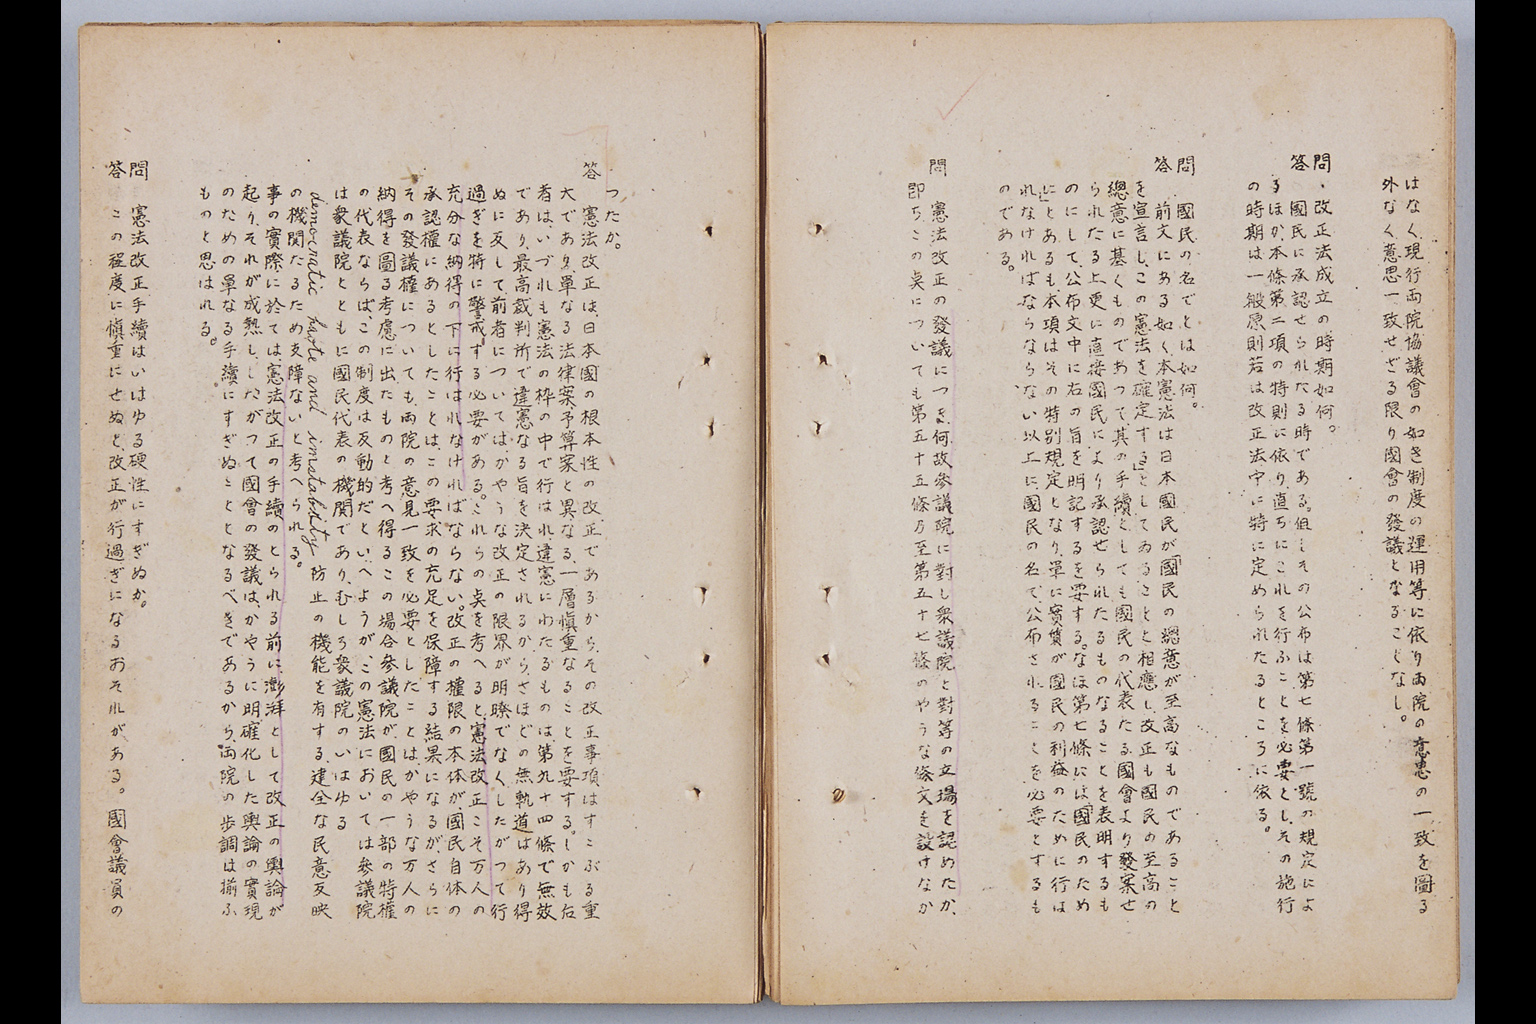 はなく、現行両院協議會の如き制度の運用等に依り両院の意思の一致を圖る
外なく意思一致せざる限り國會の發議となることなし。
問、改正法成立の時期如何？
答 國民に承認せられたる時である。但しその公布は第七條第一號の規定によ
るほか、本條第二項の特則に依り直ちにこれを行ふことを必要とし、その施行
の時期は一般原則若は改正法中に特に定められたるところに依る。
問 國民の名でとは如何。
答 前文にある如く、本憲法は日本國民が「國民の總意が至高なものであること
を宣言し、この憲法を確定する」としてゐることと相應し、改正も國民の至高の
總意に基くものであつて、其の手續としても國民の代表たる國會より發案せ
られたる上更に直接國民により承認せられたるものなることを表明するも
のにして、公布文中に右の旨を明記するを要する。なほ第七條には「國民のため
に」とあるも、本項はその特別規定となり、單に實質が國民の利益のために行は
れなければならならない以上に、國民の名で、公布されることを必要とするも
のである。
問 憲法改正の發議につき、何故參議院に對し衆議院と對等の立場を認めたか、
即ちこの点についても第五十五條乃至第五十七條のやうな條文を設けなか
つたか。
答 憲法改正は、日本國の根本性の改正であるから、その改正事項はすこぶる重
大であり、單なる法律案予算案と異なる、一層愼重なることを要する。しかも右
者は、いづれも憲法の枠の中で行はれ違憲にわたるものは、第九十四條で無效
であり、最高裁判所で違憲なる旨を決定されるから、さほどの無軌道はあり得
ぬに反して、前者については、かやうな改正の限界が明瞭でなく、したがつて行
過ぎを特に警戒する必要がある。これらの点を考へると、憲法改正こそ万人の
充分な納得の下に行はれなければならない。改正の權限の本体が、國民自体の
承認權にあるとしたことは、この要求の充足を保障する結果になるが、さらに
その發議權についても、両院の意見一致を必要としたことはかやうな万人の
納得を圖る考慮に出たものと考へ得る。この場合參議院が、國民の一部の特權
の代表ならば、この制度は反動的だといへようが、この憲法においては參議院
は衆議院とともに國民代表の機関であり、むしろ衆議院のいはゆる
democratic haste and instability 防止の機能を有する健全な民意反映
の機関たるため支障ないと考へられる。
事の實際に於ては、憲法改正の手續のとられる前に、澎湃として改正の輿論が
起り、それが成熟し、したがつて國會の發議は、かやうに明確化した輿論の實現
のための單なる手續にすぎぬこととなるべきであるから、両院の歩調は揃ふ
ものと思はれる。
問 憲法改正手續はいはゆる硬性にすぎぬか。
答 この程度に愼重にせぬと、改正が行過ぎになるおそれがある。國會議員の